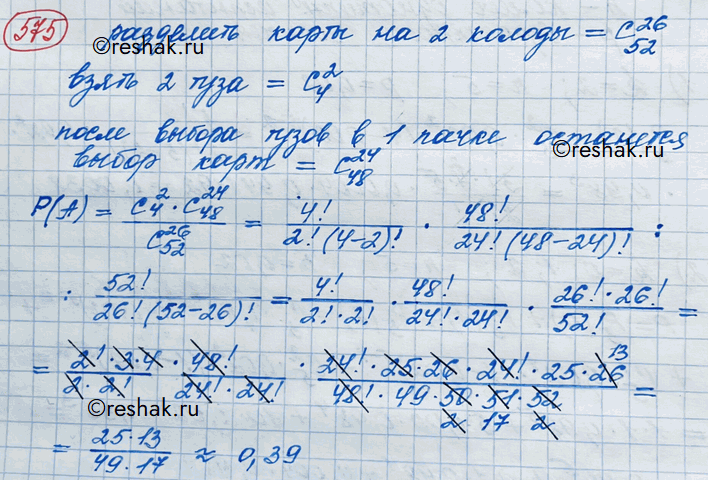 575 разделить карты на 2 колоды = C₅₂²⁶
©reshak.ru ©reshak.ru
взять 2 туза = C₄²
после выбора тузов в 1 пачке останется
©reshak.ru
выбор карт = C₄₈²⁴
P(A) = (C₄² · C₄₈²⁴)/C₅₂²⁶ = 4!/(2!(4-2)!) · 48!/(24!(48-24)!) :
©reshak.ru
: 52!/(26!(52-26)!) = 4!/(2!·2!) · 48!/(24!·24!) · (26!·26!)/52! =
= (2!·3·4)/(2·2!) · 48!/(24!·24!) · (24!·25·26·24!·25·26 13)/(48!·49·50·51·52) =
2 17 2
©reshak.ru ©reshak.ru
= (25·13)/(49·17) ≈ 0,39